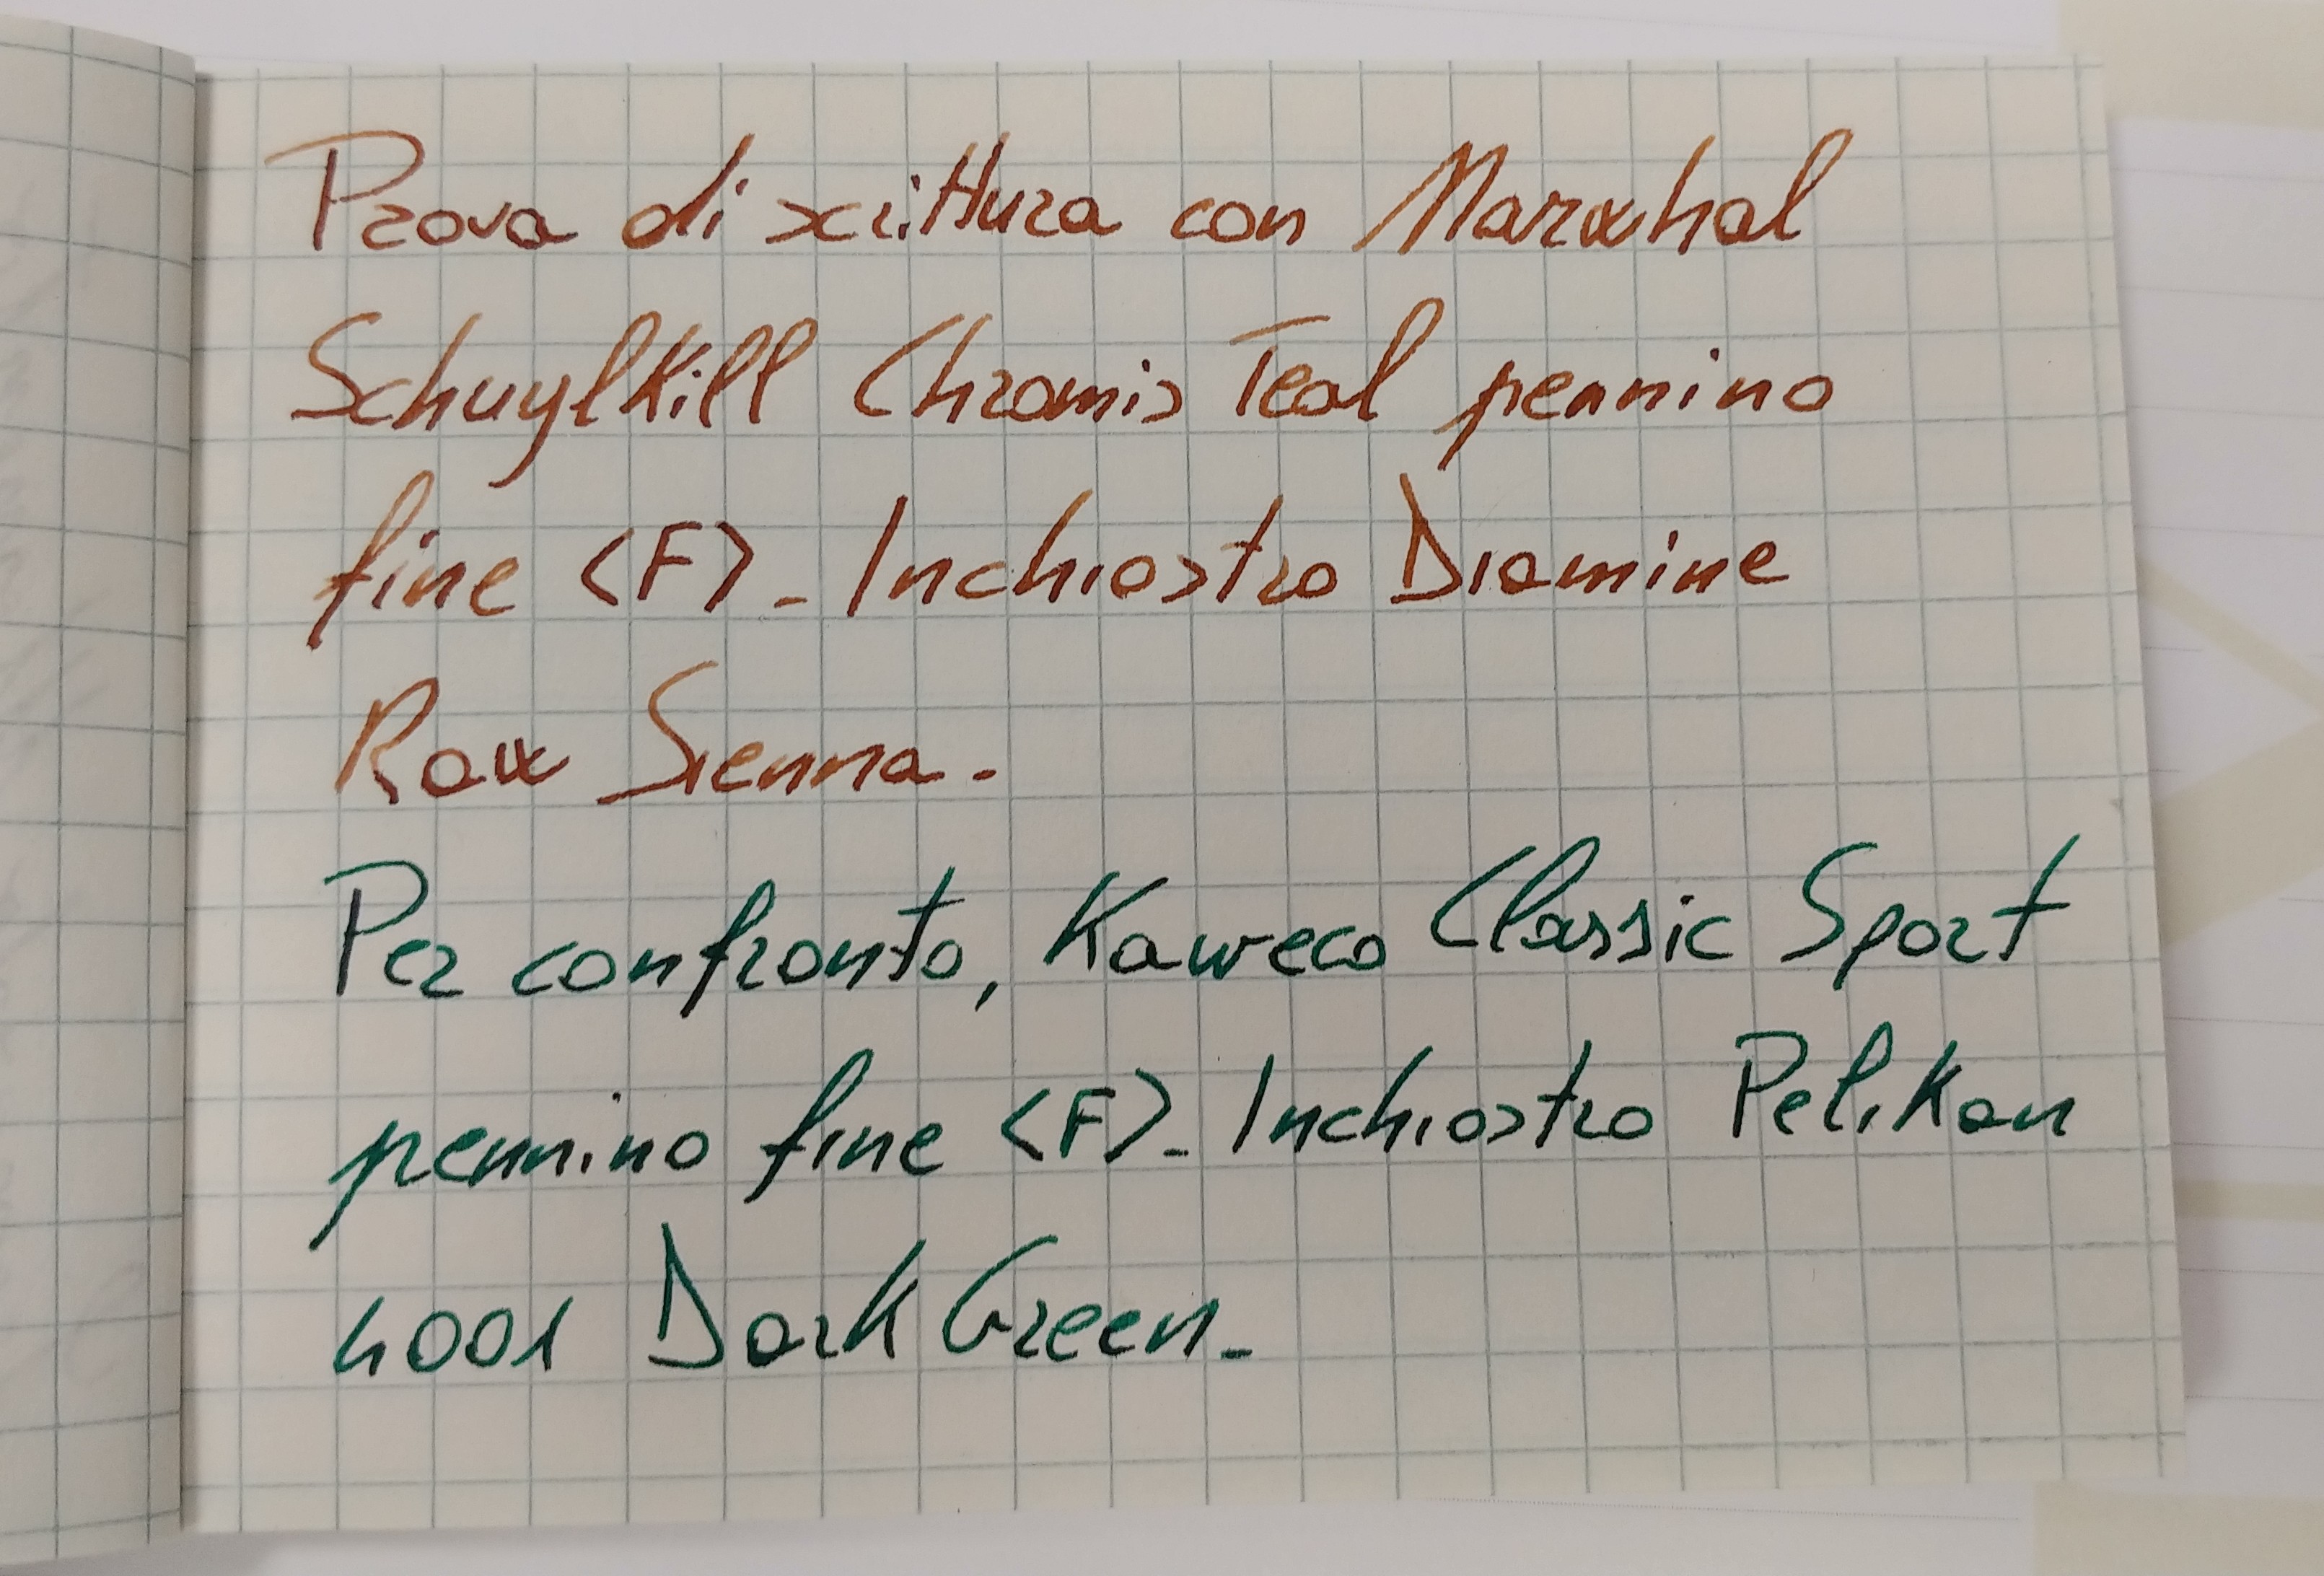 Prova di scrittura con Marwhal
Schuylkill Chromis Teal pennino
fine <F>. Inchiostro Diamine
Raw Sienna.
Per confronto, Kaweco Classic Sport
pennino fine <F>. Inchiostro Pelikan
4001 Dark Green.